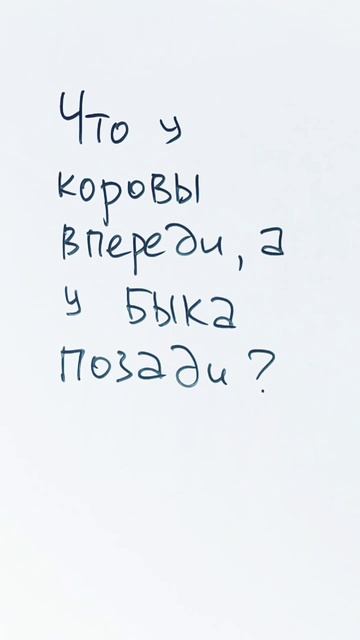 Что у
коровы
впереди, а
у быка
позади?